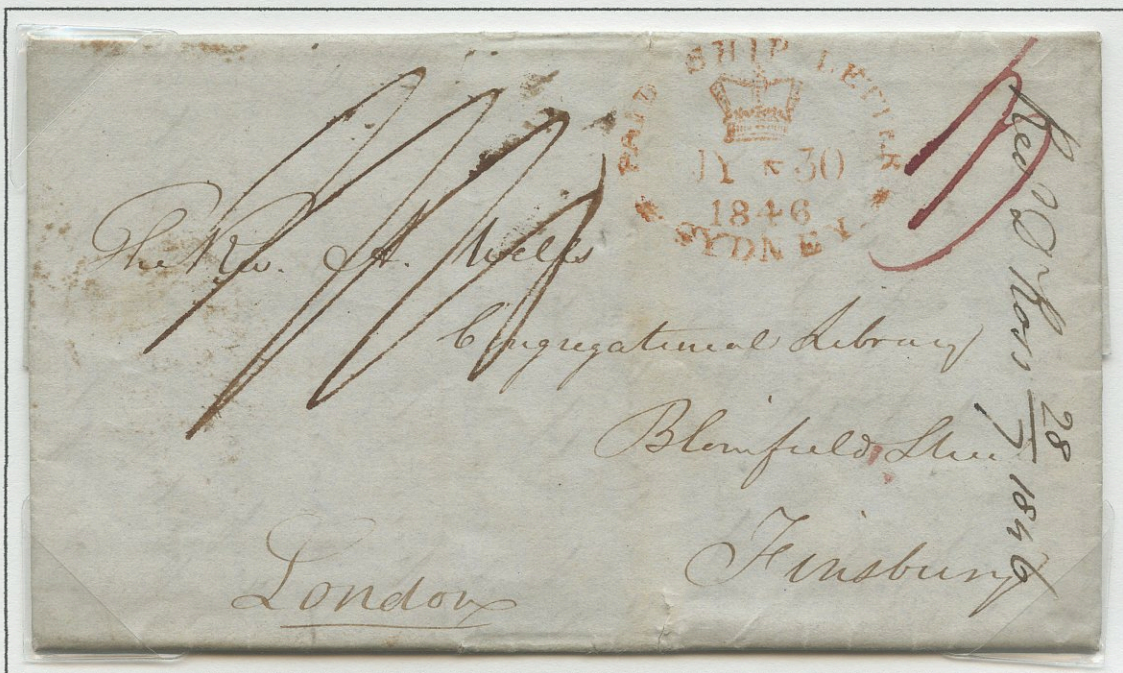 PAID SHIP LETTER
JY * 30
1846
* SYDNEY *
The Rev. A. Wells
Congregational Library
Blomfield Street
Finsbury
London
Rev D Ross 28/7 1846